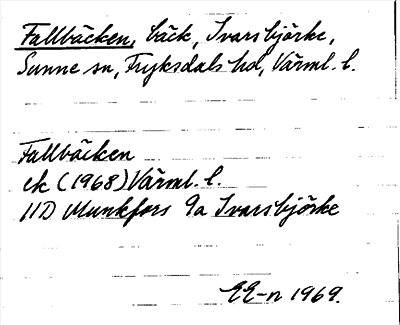 Fallbäcken, bäck, Ivarsbjörke,
Sunne sn, Fryksdals hd, Värml. l.
Fallbäcken
ek (1968) Värml. l.
11D Munkfors 9a Ivarsbjörke
EE-n 1969.